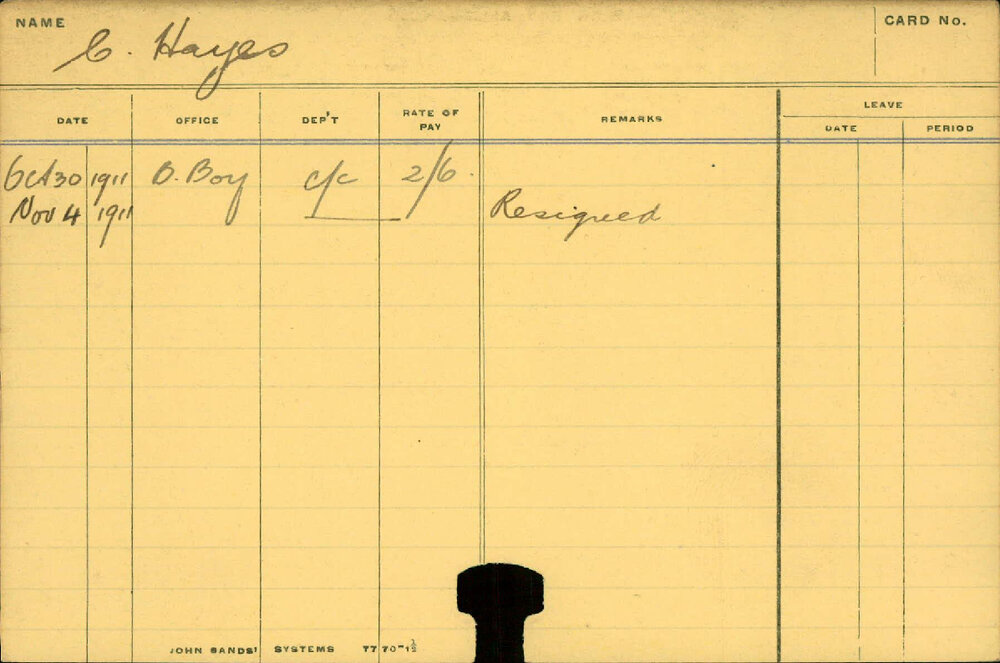 NAME C. Hayes CARD No.
LEAVE
DATE OFFICE DEP'T RATE OF PAY REMARKS DATE PERIOD
Oct 30 1911 O. Boy c/c 2/6
Nov 4 1911 Resigned
JOHN SANDS' SYSTEMS 7770-1½